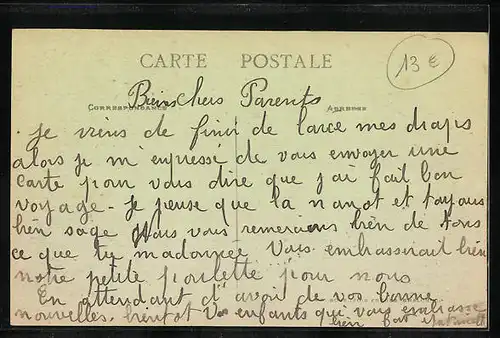 CARTE POSTALE
13 €
Biens chers Parents
CORRESPONDANCE ADRESSE
Je viens de finir de larce mes draps
alors je m'enpressé de vous envoyer une
carte pour vous dire que j'ai fait bon
voyage. Je pense que la nanot et toujous
bien sage Nous vous remercions bien de tous
ce que tu madonnée Vous embrasserait bien
notre petite poulette pour nous
En attendant d'avoir de vos bonne
nouvelles, bientot Vos enfants qui vous embrasse
bien fort